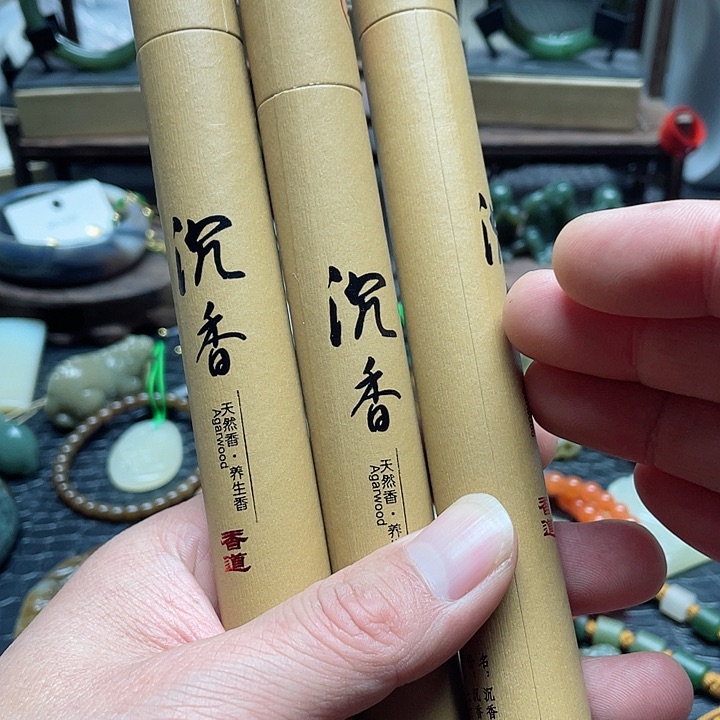 沉香
天然香·养生香
Agarwood
香道
沉香
天然香·养
Agarwood
香道
名：沉香
沉香